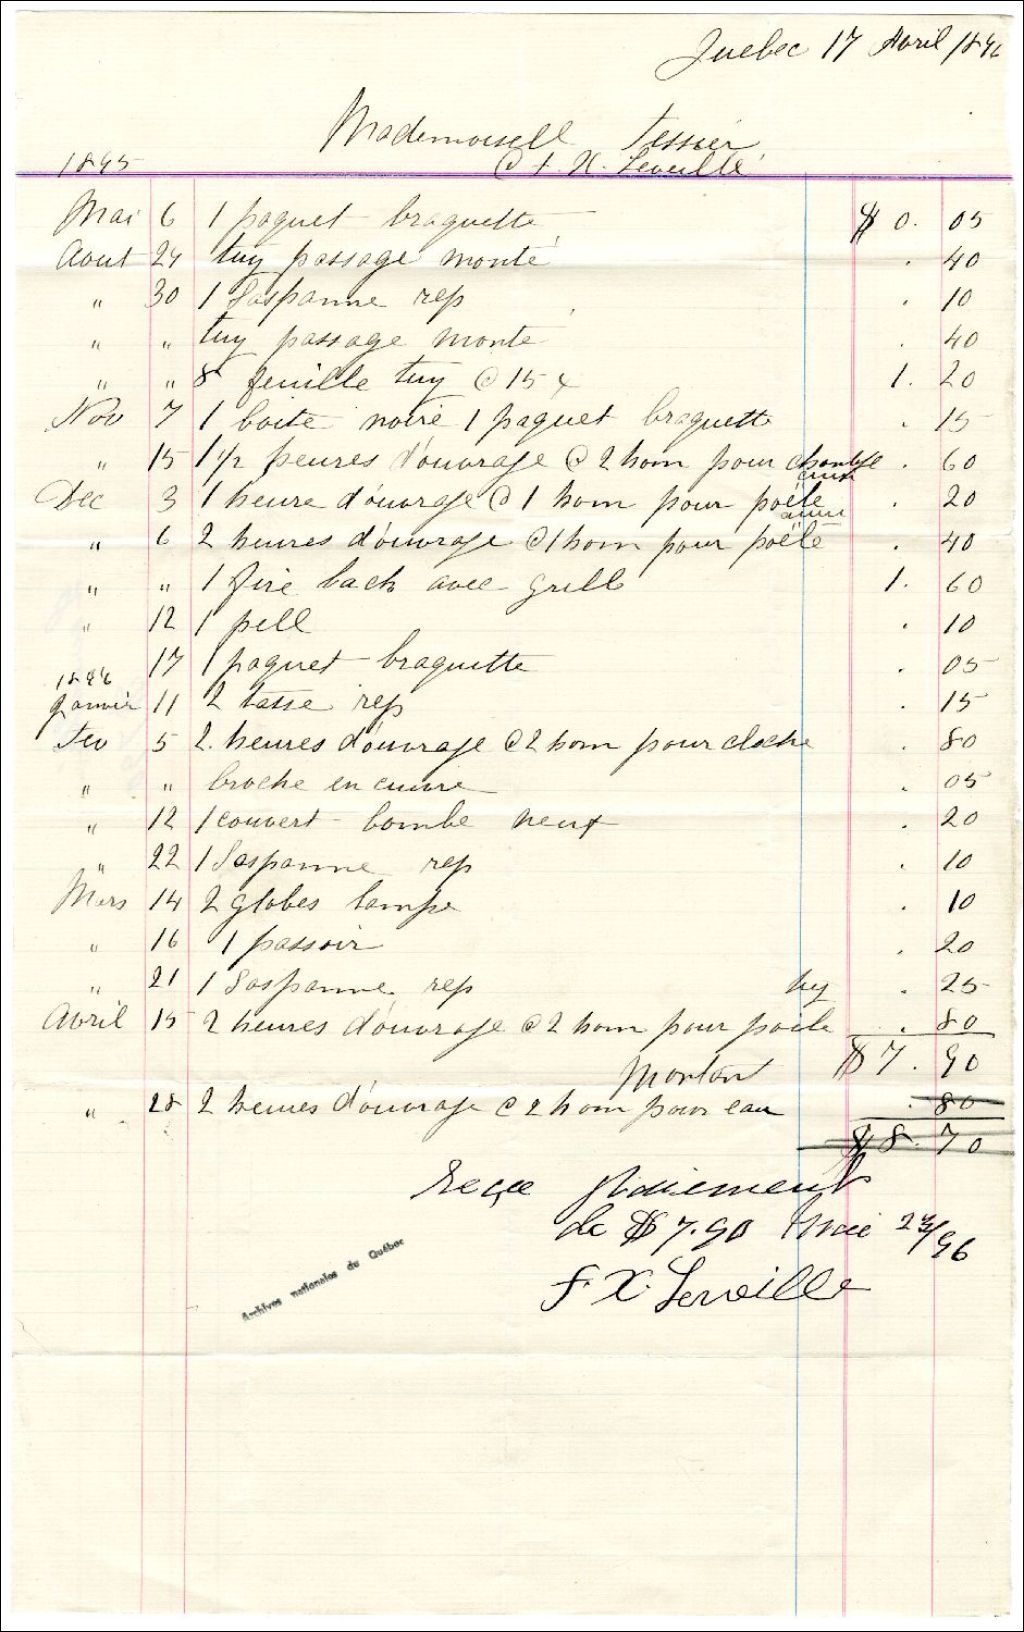 Quebec 17 Avril 1896
Mademoisell Tessier
1895 @ F. X. Leveille
Mai 6 1 paquet braquette $ 0. 05
Aout 24 tuy passage monte . 40
" 30 1 Saspanne rep . 10
" " tuy passage monte . 40
" " 8 feuille tuy @ 15 ¢ 1. 20
Nov 7 1 boite noire 1 paquet braquette . 15
" 15 1 1/2 heures d'ouvrage @ 2 hom pour . 60
Dec 3 1 heure d'ouvrage @ 1 hom pour poêle . 20
" 6 2 heures d'ouvrage @ 1 hom pour poêle . 40
" " 1 fire back avec grill 1. 60
" 12 1 pell . 10
17 1 paquet braquette . 05
1896
Janvier 11 2 tasse rep . 15
Fev 5 2 heures d'ouvrage @ 2 hom pour cloche . 80
" " broche en cuivre . 05
" 12 1 couvert bombe neuf . 20
" 22 1 Saspanne rep . 10
Mars 14 2 globes lampe . 10
" 16 1 passoir . 20
" 21 1 Saspanne rep . 25
Avril 15 2 heures d'ouvrage @ 2 hom pour poêle . 80
Montant $ 7. 90
" 28 2 heures d'ouvrage @ 2 hom pour eau . 80
$ 8. 70
Reçue
de $ 7.90 Mai /96
F. X. Leveille
Archives nationales du Québec